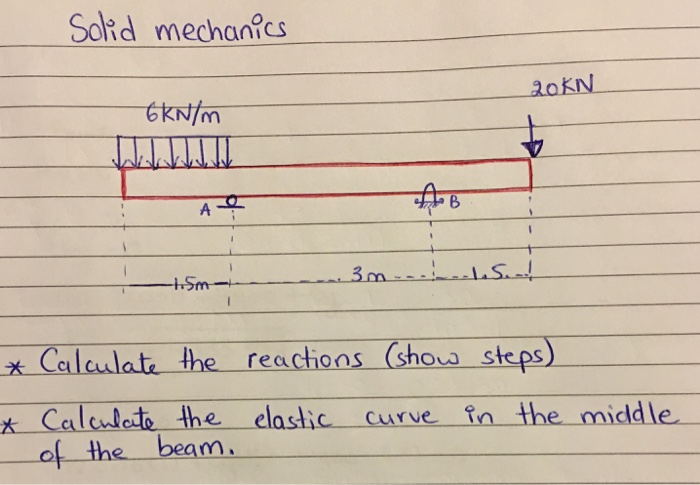 Solid mechanics
20KN
6KN/m
A
B
1.5m
3m
1.5
* Calculate the reactions (show steps)
* Calculate the elastic curve in the middle
of the beam.